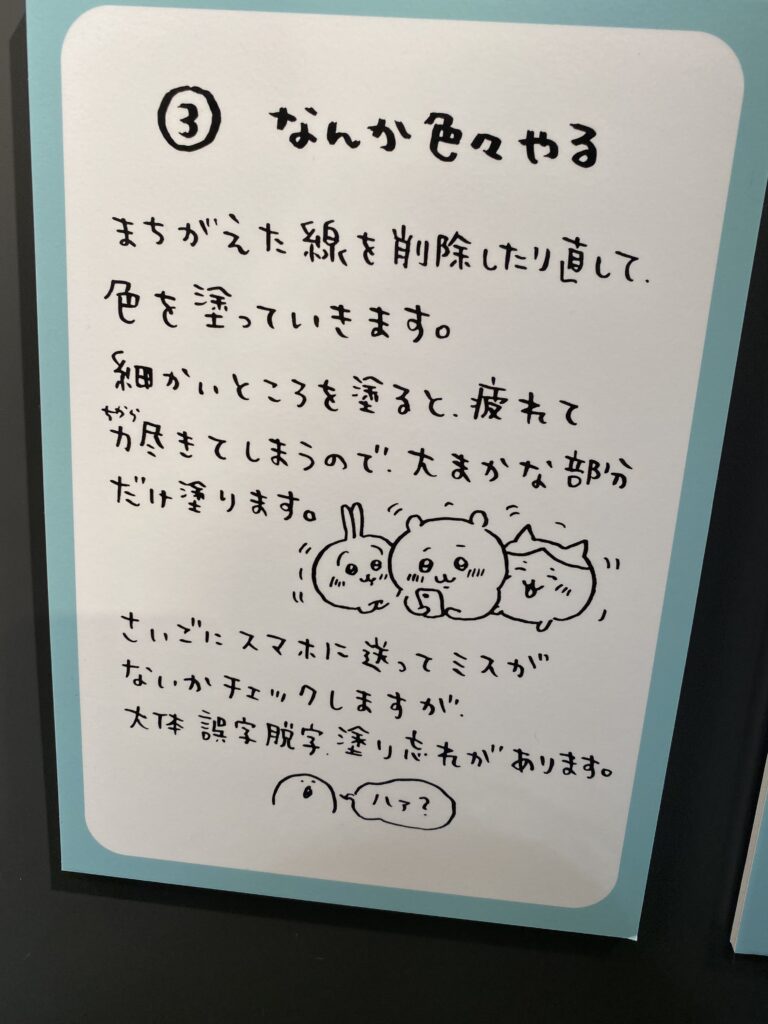 ③ なんか色々やる
まちがえた線を削除したり直して、
色を塗っていきます。
細かいところを塗ると、疲れて
ちから
力尽きてしまうので、大まかな部分
だけ塗ります。
さいごにスマホに送ってミスが
ないかチェックしますが、
大体 誤字脱字、塗り忘れがあります。
ハァ?